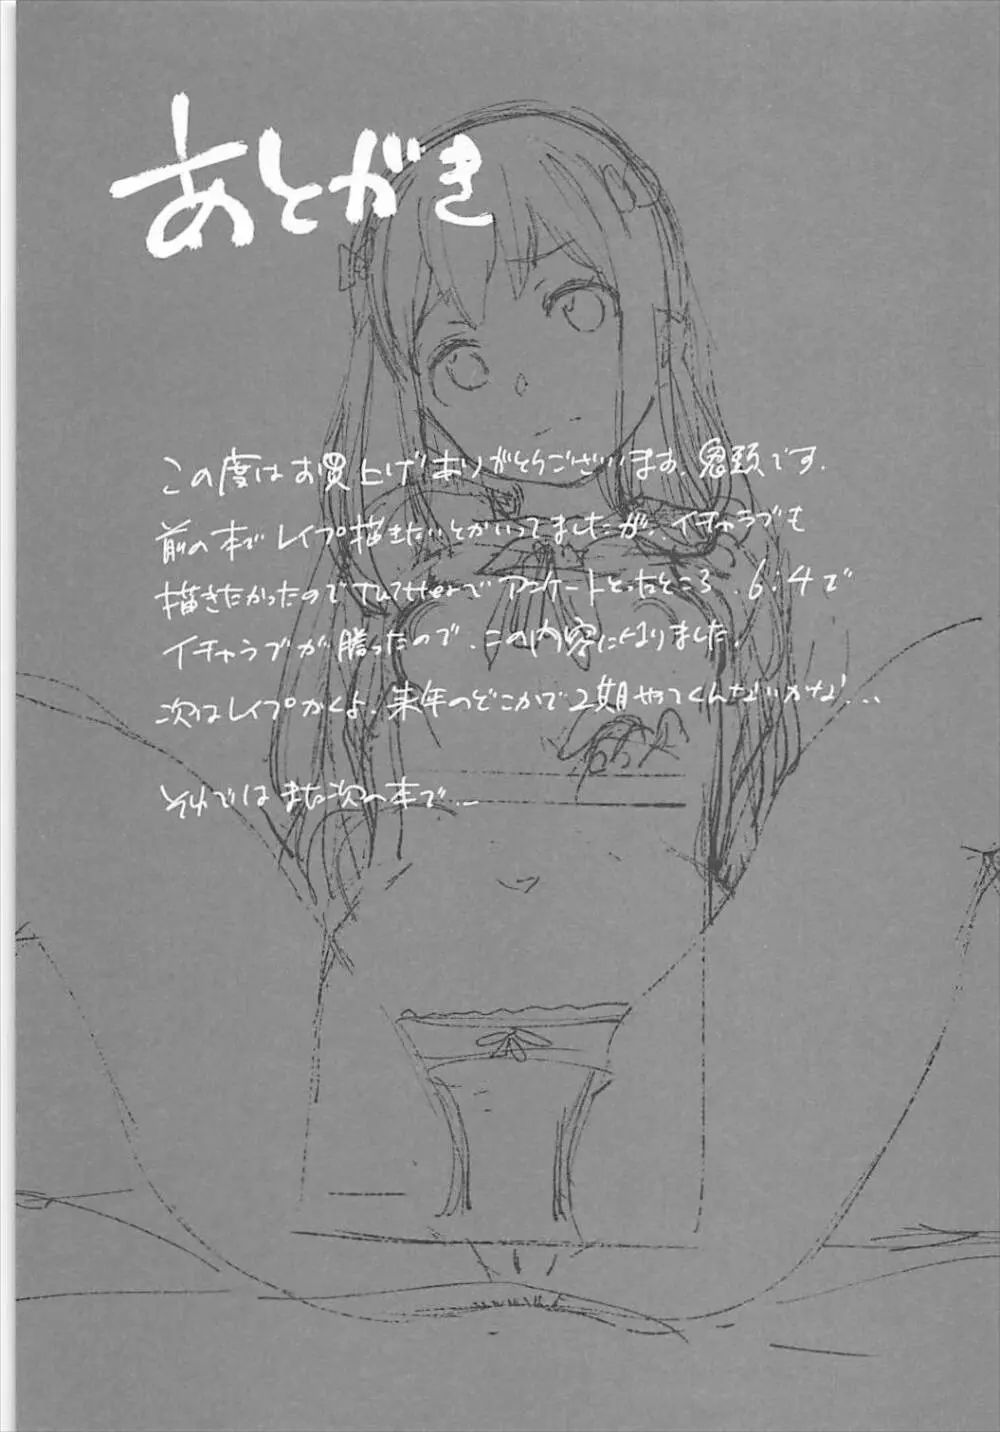 あとがき
この度はお買上げありがとうございます、鬼頭です.
前の本でレイプ描きたいとかいってましたが、イチャラブも
描きたかったのでTwitterでアンケートとったところ、6:4で
イチャラブが勝ったので、この内容になりました.
次はレイプかくよ. 来年のどこかで2期やってくんないかな…
それではまた次の本で…